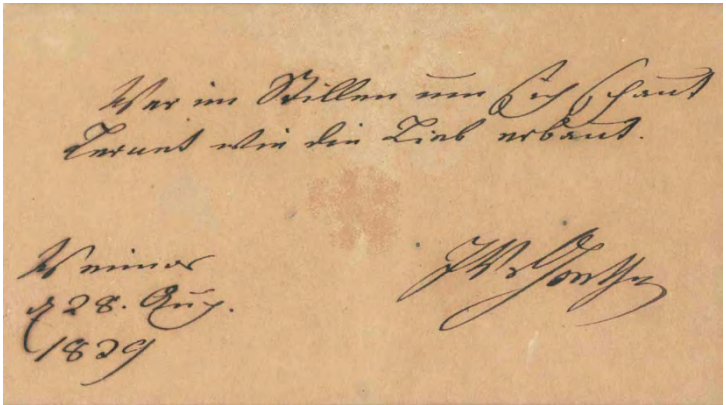 Wer im Stillen um sich schaut
Lernet wie die Lieb erbaut.
Weimar
d 28. Aug.
1829
JWvGoethe